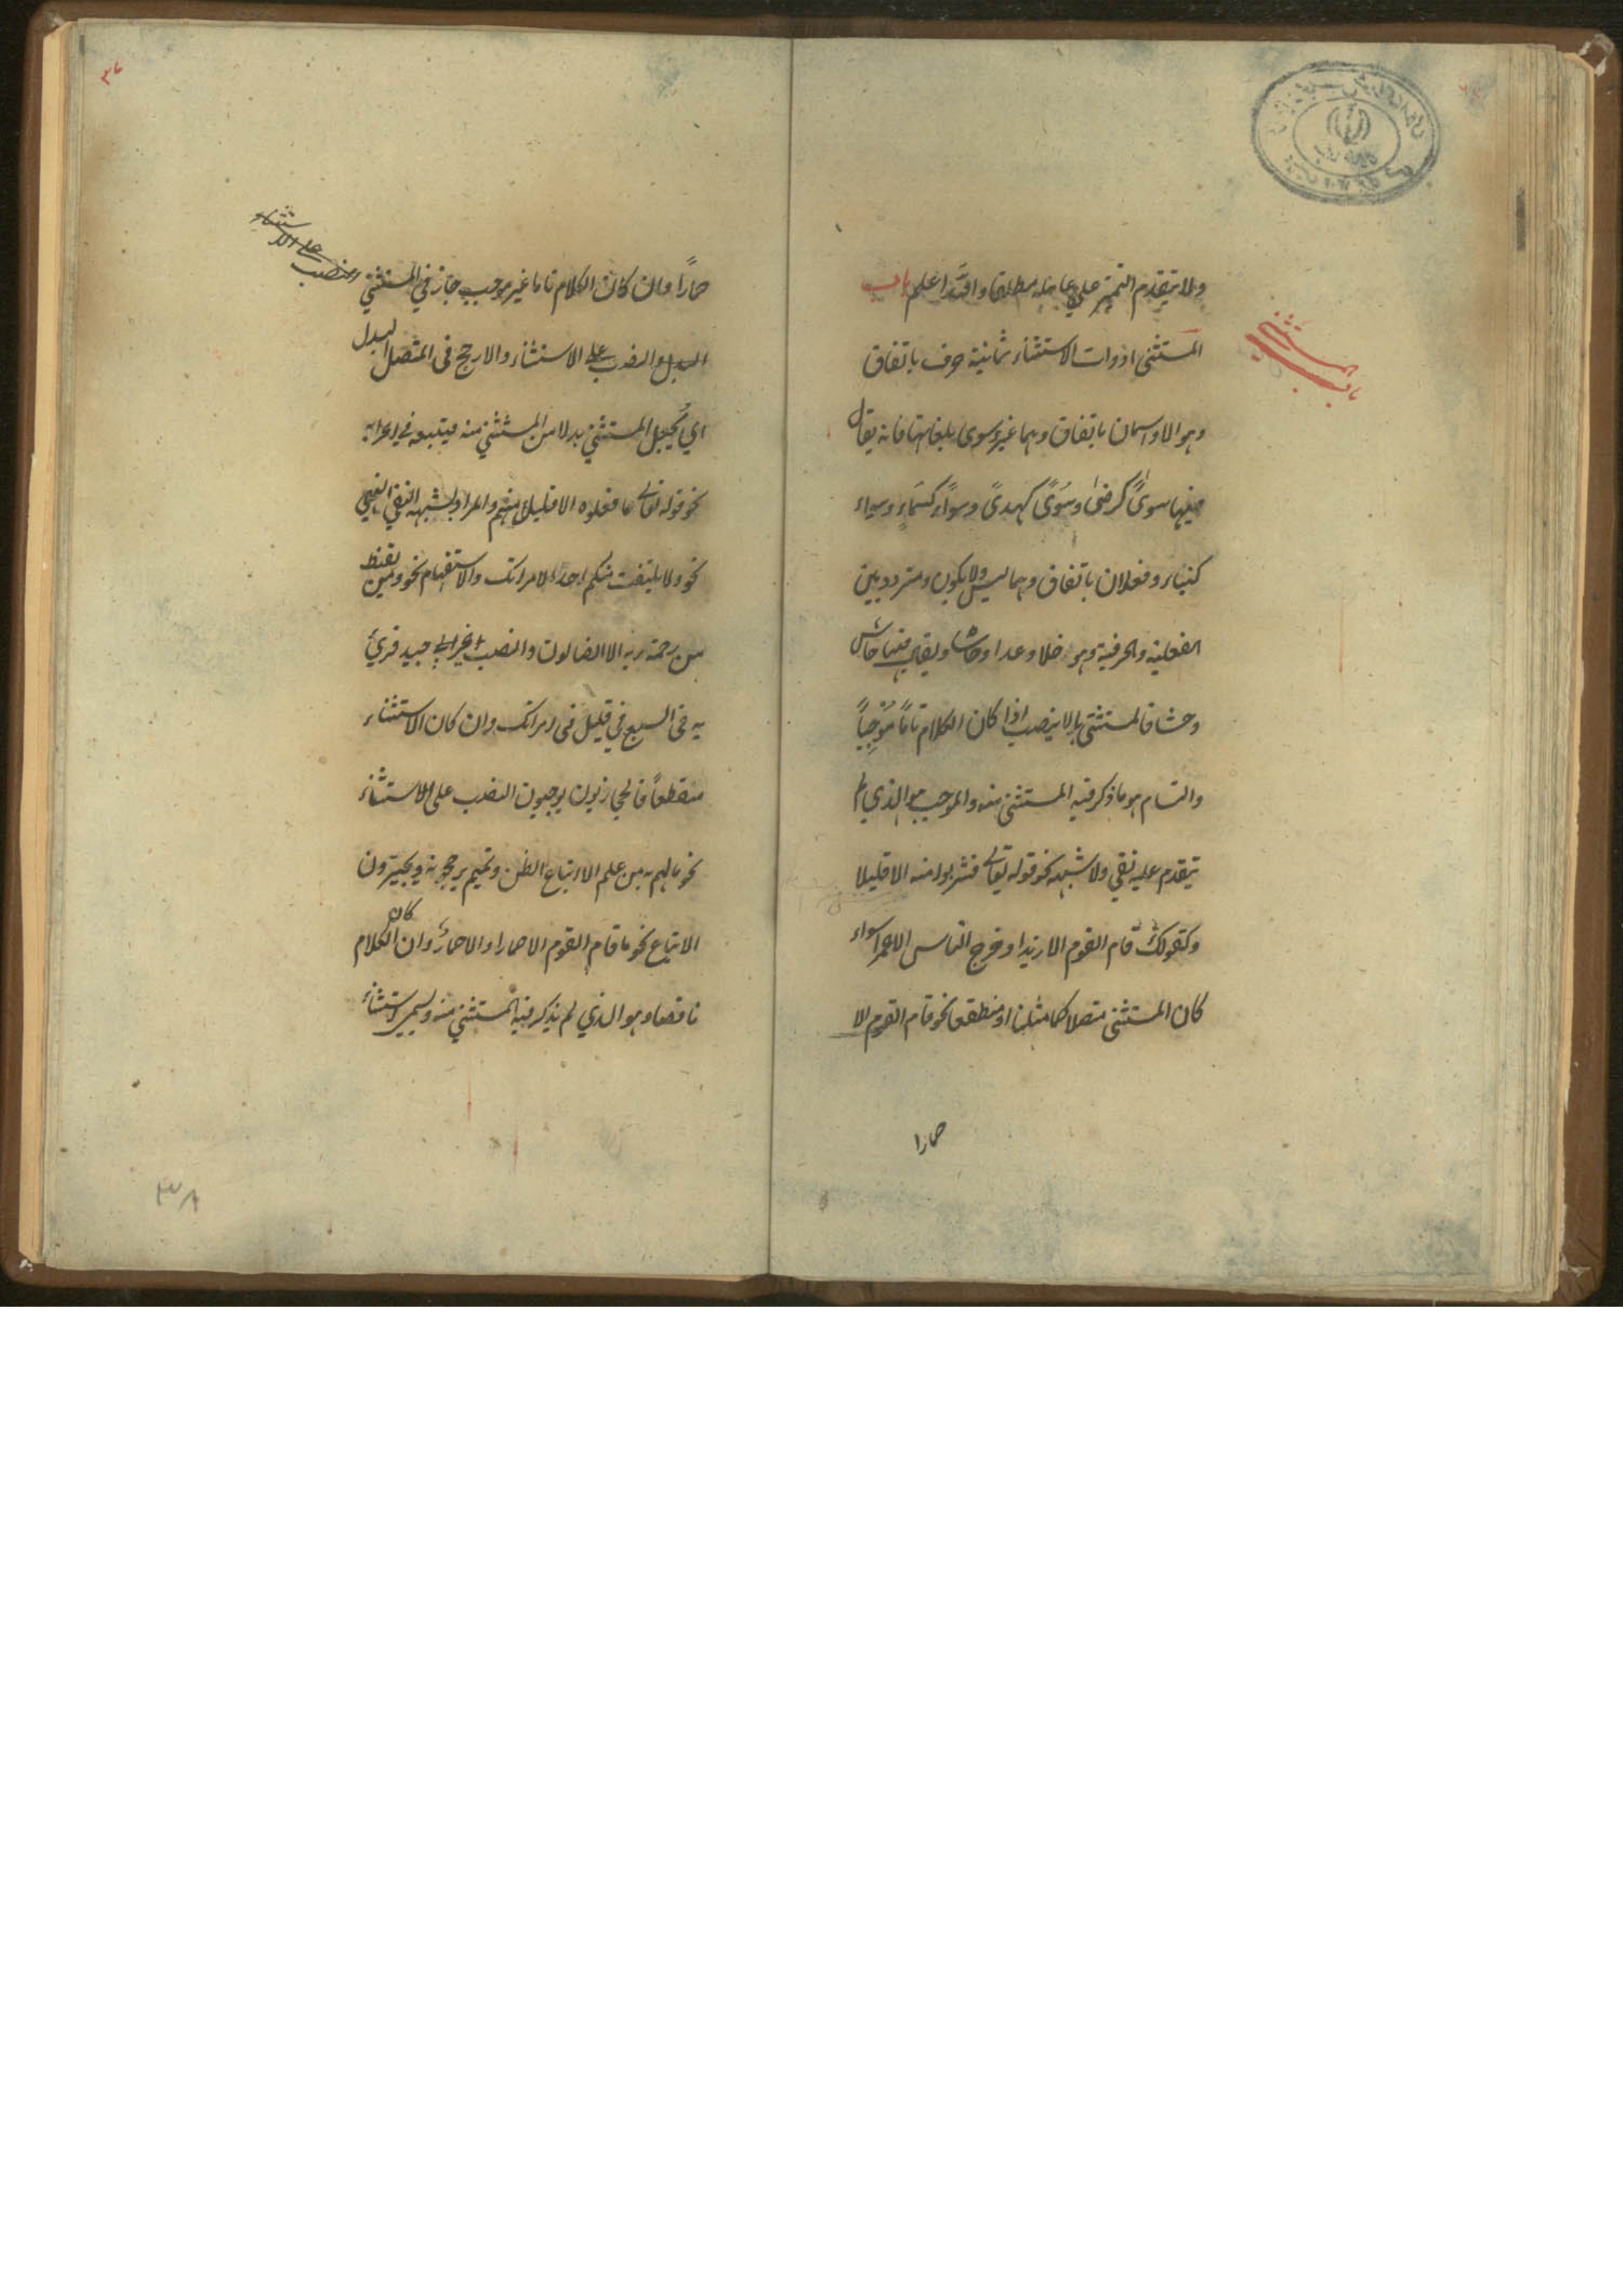 ولا يتقدم التمييز على عامله مطلقا والله اعلم باب
المستثنى ادوات الاستثناء ثمانية حرف باتفاق
وهو الا واسمان باتفاق وهما غير وسوى بلغاتها فانه يقال
فيها سوىً كرضىً وسُوىً كهدىً وسواء كسَماء وسواء
كبناء وفعلان باتفاق وهما ليس ولا يكون ومتردد بين
الفعلية والحرفية وهو خلا وعدا وحاشا ويقال فيها حاش
وحشا فالمستثنى بالا ينصب اذا كان الكلام تاماً مُوجِباً
والتام هو ما ذكر فيه المستثنى منه والموجب هو الذي لم
يتقدم عليه نفي ولا شبهه نحو قوله تعالى فشربوا منه الا قليلا
وكقولك قام القوم الا زيدا وخرج الناس الا عمرا سواء
كان المستثنى متصلا كما مثلنا او منقطعا نحو قام القوم الا
حمارا
باب المستثنى
حماراً وان كان الكلام تاما غير موجب جاز في المستثنى
البدل والنصب على الاستثناء والارجح في المتصل البدل
اي يُجعل المستثنى بدلا من المستثنى منه فيتبعه في اعرابه
نحو قوله تعالى ما فعلوه الا قليل منهم والمراد بشبه النفي النهي
نحو ولا يلتفت منكم احد الا امراتك والاستفهام نحو ومن يقنط
من رحمة ربه الا الضالون والنصب عربي جيد قرئ
به في السبع في قليل في امراتك وان كان الاستثناء
منقطعاً فالحجازيون يوجبون النصب على الاستثناء
نحو ما لهم به من علم الا اتباع الظن وتميم يرجحونه ويجيزون
الاتباع نحو ما قام القوم الا حمارا والا حمارٌ وان كان الكلام
ناقصا وهو الذي لم يذكر فيه المستثنى منه ويسمى استثناء
والنصب
على الا
ستثناء
٣٨